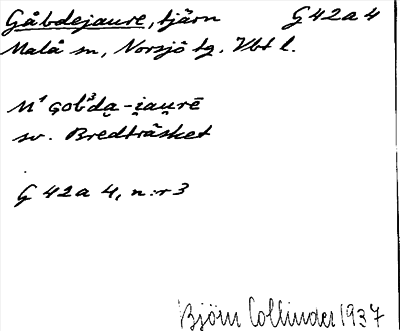 Gåbdejaure, tjärn G42a4
Malå sn, Norsjö tg, Vbt l.
M¹ gob³da̮-i̯au̯rē
sv. Bredträsket
G 42a 4, n:r 3
Björn Collinder 1937